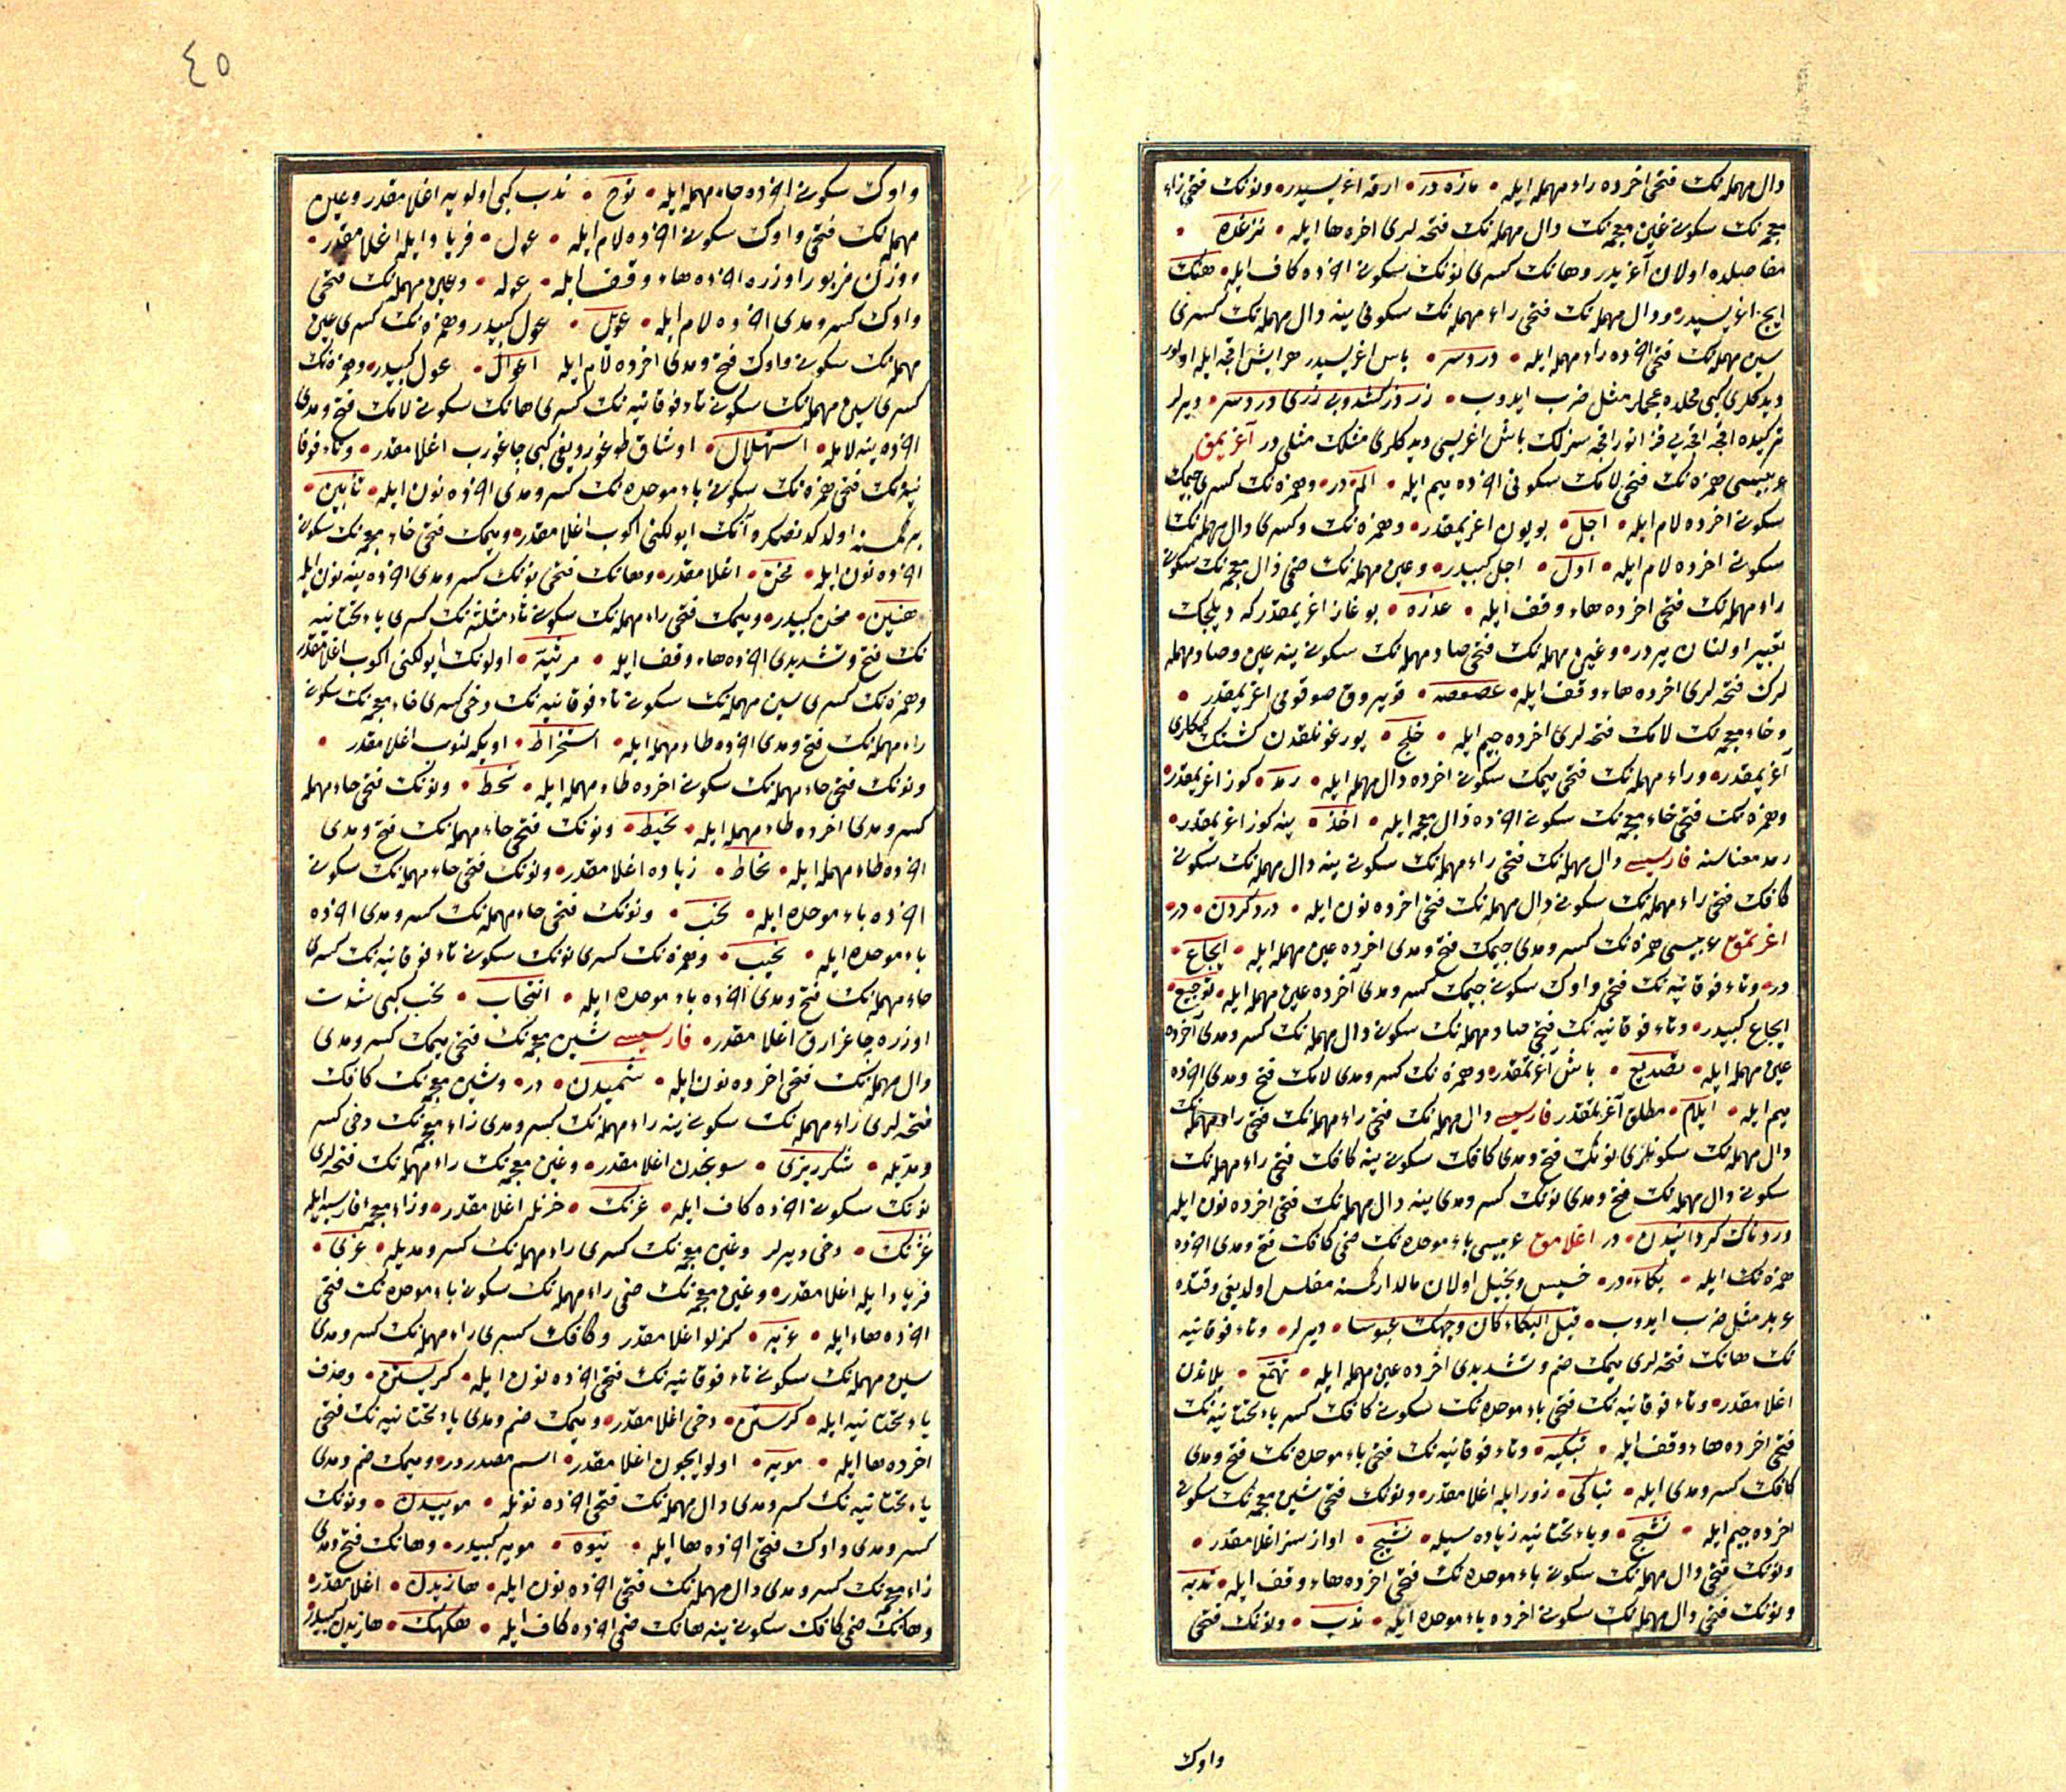 دال مهمله‌نک فتحی اخرده راء مهمله ایله • مازه در • ارقه اغریسیدر • ونونک فتحی زاء
معجمه‌نک سکونی غین معجمه‌نک دال مهمله‌نک فتحه‌لری اخره ها ایله • نزغده •
مفاصلده اولان آغریدر وهانک کسری نونک سکونی اخرده کاف ایله • هنک
ایچ اغریسیدر • ودال مهمله‌نک فتحی راء مهمله‌نک سکونی ینه دال مهمله‌نک کسری
سین مهمله‌نک فتحی اخرده راء مهمله ایله • دردسر • باش اغریسیدر هر ایش اقچه ایله اولور
دیدکلری کبی محلده عجملر مثل ضرب ایدوب • زر زر کشد وبی زری دردسر • دیرلر
ترکیده اقچه اقچه یی قزانور اقچه سزلک باش اغریسی دیدکلری مثلک مثلی در آغریمق
عربیسی همزه‌نک فتحی لامک سکونی اخرده میم ایله • الم • در • وهمزه‌نک کسری جیمک
سکونی اخرده لام ایله • اجل • بویون اغریمقدر • وهمزه‌نک کسری دال مهمله‌نک
سکونی اخرده لام ایله • ادل • اجل کبیدر • وعین مهمله‌نک ضمی ذال معجمه‌نک سکونی
راء مهمله‌نک فتحی اخرده هاء وقف ایله • عذره • بوغاز اغریمقدر که دیلجک
تعبیر اولنان یردر • وعین مهمله‌نک فتحی صاد مهمله‌نک سکونی ینه عین وصاد مهمله
لرک فتحه‌لری اخرده هاء وقف ایله • عصعصه • قویروق صوقومی اغریمقدر •
وخاء معجمه‌نک لامک فتحه‌لری اخرده جیم ایله • خلج • یورغونلقدن کشینک کمکلری
آغریمقدر • وراء مهمله‌نک فتحی میمک سکونی اخرده دال مهمله ایله • رمد • کوز اغریمقدر •
وهمزه‌نک فتحی خاء معجمه‌نک سکونی اخرده ذال معجمه ایله • اخذ • ینه کوز اغریمقدر •
رمد معناسنه فارسیسی دال مهمله‌نک فتحی راء مهمله‌نک سکونی ینه دال مهمله‌نک سکونی
کافک فتحی راء مهمله‌نک سکونی دال مهمله‌نک فتحی اخرده نون ایله • درد کردن • در •
اغرتمق عربیسی همزه‌نک کسر ومدی جیمک فتح ومدی اخرده عین مهمله ایله • ایجاع •
در • وتاء فوقانیه‌نک فتحی واوک سکونی جیمک کسر ومدی آخرده عین مهمله ایله • توجیع •
ایجاع کبیدر • وتاء فوقانیه‌نک فتحی صاد مهمله‌نک سکونی دال مهمله‌نک کسر ومدی آخرده
عین مهمله ایله • تصدیع • باش آغرتمقدر • وهمزه‌نک کسر ومدی لامک فتح ومدی اخرده
میم ایله • ایلام • مطلق آغرتمقدر فارسیسی دال مهمله‌نک فتحی راء مهمله‌نک فتحی راء مهمله‌نک
دال مهمله‌نک سکونلری نونک فتح ومدی کافک سکونی ینه کافک فتحی راء مهمله‌نک
سکونی دال مهمله‌نک فتح ومدی نونک کسر ومدی ینه دال مهمله‌نک فتحی اخرده نون ایله
دردناک کردانیدن • در اغلامق عربیسی باء موحده‌نک ضمی کافک فتح ومدی اخرده
همزه‌نک ایله • بکاء • در • خسیس وبخیل اولان مالدار کمسنه مفلس اولدیغی وقتده
عربلر مثل ضرب ایدوب • قبل البکاء کان وجهک عبوسا • دیرلر • وتاء فوقانیه
نک هانک فتحه‌لری میمک ضم وتشدیدی اخرده عین مهمله ایله • تهمع • یلاندن
اغلامقدر • وتاء فوقانیه‌نک فتحی باء موحده‌نک سکونی کافک کسر یاء تحتانیه‌نک
فتحی اخرده هاء وقف ایله • تبکیه • وتاء فوقانیه‌نک فتحی باء موحده‌نک فتح ومدی
کافک کسر ومدی ایله • تباکی • زور ایله اغلامقدر • ونونک فتحی شین معجمه‌نک سکونی
اخرده جیم ایله • نشج • ویاء تحتانیه زیاده‌سیله • نشیج • اوازسز اغلامقدر •
ونونک فتحی دال مهمله‌نک سکونی باء موحده‌نک فتحی اخرده هاء وقف ایله • ندبه
ونونک فتحی دال مهمله‌نک سکونی اخرده باء موحده ایله • ندب • ونونک فتحی
واوک
٤٥
واوک سکونی اخرده حاء مهمله ایله • نوح • ندب کبی اولویه اغلامقدر وعین
مهمله‌نک فتحی واوک سکونی اخرده لام ایله • عول • فریاد ایله اغلامقدر •
ووزن مزبور اوزره اخرده هاء وقف ایله • عوله • وعین مهمله‌نک فتحی
واوک کسر ومدی اخرده لام ایله • عویل • عول کبیدر وهمزه‌نک کسری عین
مهمله‌نک سکونی واوک فتح ومدی اخرده لام ایله اعوال • عول کبیدر • وهمزه‌نک
کسری سین مهمله‌نک سکونی تاء فوقانیه‌نک کسری هانک سکونی لامک فتح ومدی
اخرده ینه لام ایله • استهلال • اوشاق طوغوردیغی کبی چاغورب اغلامقدر • وتاء فوقا
نیه‌نک فتحی همزه‌نک سکونی باء موحده‌نک کسر ومدی اخرده نون ایله • تأبین •
بر کمسنه اولدکدنصکره آنک ایولکنی اکوب اغلامقدر • ومیمک فتحی خاء معجمه‌نک سکونی
اخرده نون ایله • مخن • اغلامقدر • وهانک فتحی نونک کسر ومدی اخرده ینه نون ایله
هنین • مخن کبیدر • ومیمک فتحی راء مهمله‌نک سکونی ثاء مثلثه‌نک کسری یاء تحتانیه
نک فتح وتشدیدی اخرده هاء وقف ایله • مرثیه • اولونک ایولکنی اکوب اغلامقدر
وهمزه‌نک کسری سین مهمله‌نک سکونی تاء فوقانیه‌نک دخی کسری خاء معجمه‌نک سکونی
راء مهمله‌نک فتح ومدی اخرده طاء مهمله ایله • استخراط • اویکه‌لنوب اغلامقدر •
ونونک فتحی حاء مهمله‌نک سکونی اخرده طاء مهمله ایله • نحط • ونونک فتحی حاء مهمله
کسر ومدی اخرده طاء مهمله ایله • نحیط • ونونک فتحی حاء مهمله‌نک فتح ومدی
اخرده طاء مهمله ایله • نحاط • زیاده اغلامقدر • ونونک فتحی حاء مهمله‌نک سکونی
اخرده باء موحده ایله • نحب • ونونک فتحی حاء مهمله‌نک کسر ومدی اخرده
باء موحده ایله • نحیب • وهمزه‌نک کسری نونک سکونی تاء فوقانیه‌نک کسری
حاء مهمله‌نک فتح ومدی اخرده باء موحده ایله • انتحاب • نحب کبی شدت
اوزره چاغرارق اغلامقدر • فارسیسی شین معجمه‌نک فتحی میمک کسر ومدی
دال مهمله‌نک فتحی اخرده نون ایله • شمیدن • در • وشین معجمه‌نک کافک
فتحه‌لری راء مهمله‌نک سکونی ینه راء مهمله‌نک کسر ومدی زاء معجمه‌نک دخی کسر
ومدیله • شکرریزی • سونجدن اغلامقدر • وغین معجمه‌نک راء مهمله‌نک فتحه‌لری
نونک سکونی اخرده کاف ایله • غرنک • خرنله اغلامقدر • وزاء معجمه فارسیه ایله
غژنک • دخی دیرلر وغین معجمه‌نک کسری راء مهمله‌نک کسر ومدیله • غری •
فریاد ایله اغلامقدر • وغین معجمه‌نک ضمی راء مهمله‌نک سکونی باء موحده‌نک فتحی
اخرده هاء ایله • غربه • کزلو اغلامقدر وکافک کسری راء مهمله‌نک کسر ومدی
سین مهمله‌نک سکونی تاء فوقانیه‌نک فتحی اخرده نون ایله • کریستن • وحذف
یاء تحتانیه ایله • کرستن • دخی اغلامقدر • ومیمک ضم ومدی یاء تحتانیه‌نک فتحی
اخرده ها ایله • مویه • اولو ایچون اغلامقدر • اسم مصدردر • ومیمک ضم ومدی
یاء تحتانیه‌نک کسر ومدی دال مهمله‌نک فتحی اخرده نونله • موییدن • ونونک
کسر ومدی واوک فتحی اخرده ها ایله • نیوه • مویه کبیدر • وهانک فتح ومدی
زاء معجمه‌نک کسر ومدی دال مهمله‌نک فتحی اخرده نون ایله • هازیدن • اغلامقدر •
وهانک ضمی کافک سکونی ینه هانک ضمی اخرده کاف ایله • هکهک • هازیدن کبیدر